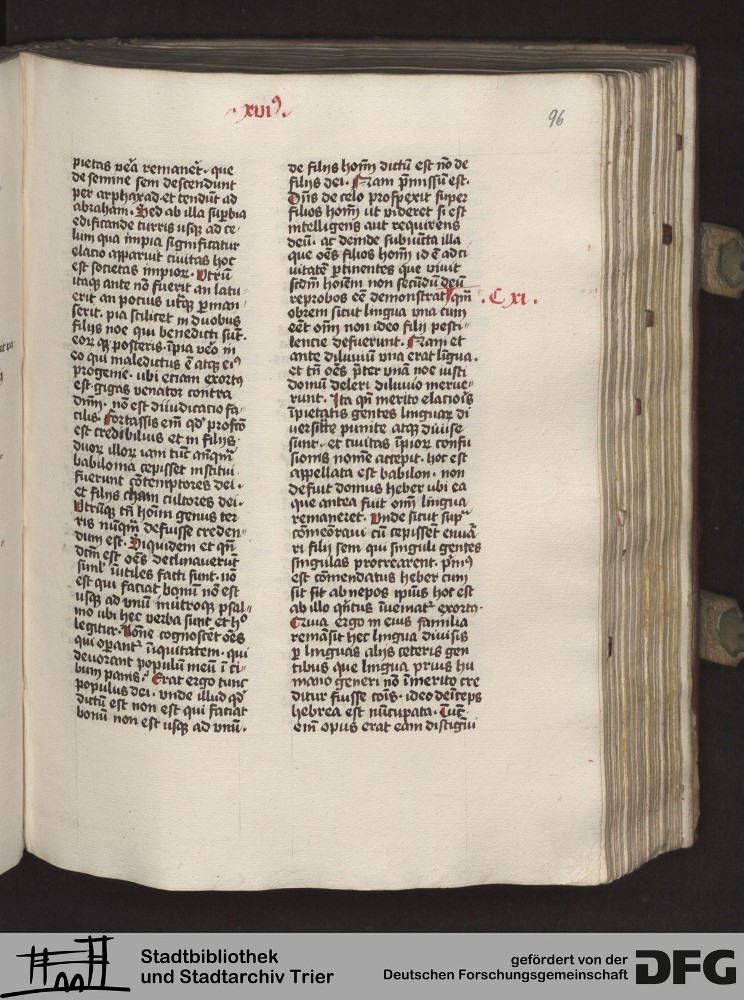 .xvi⁹.
96
pietas vẽa remaneret. que
de semine sem descendunt
per arphaxad. et tendūt ad
abraham. Sed ab illa supbia
edificande turris usq; ad ce-
lum qua impia significatur
elatio apparuit civitas hoc
est societas impior. Utrū
itaq; ante nō fuerit an latu-
erit an potius utq; pman-
serit. pia scilicet in duobus
filijs noe qui benedicti sūt.
eor q; posteris. īpia vēo in
eo qui maledictus ē atq; ei⁹
progenie. ubi etiam exort⁹
est gigas venator contra
dnm. nō est diiudicatio fa-
cilis. Fortassis em̄ qd profcō
est credibilius et in filijs
duor illor iam tūc anq̄m
babilonia cepisset institui
fuerunt cōtemptores dei.
et filijs cham cultores dei.
Utrūq; tn̄ hoīm genus ter
ris nūq̄m defuisse creden-
dum est. Siquidem et qn̄
dcm̄ est oēs declinaverūt
siml īutiles facti sunt. nō
est qui faciat bonū nō est
usq; ad unū inutroq; psal-
mo ubi hec verba sunt et hº
legitur. Nōne cognoscēt oēs
qui opant̄ īiquitatem. qui
devorant populū meū ī ci-
bum panis. Erat ergo tunc
populus dei. unde illud qd
dictū est non est qui faciat
bonū non est usq; ad unū.
de filijs hoīm dictū est nō de
filijs dei. Nam p̄missū est.
Dn̄s de celo prospexit super
filios hoīm ut videret si est
intelligens aut requirens
deū. ac deinde subiūcta illa
que oēs filios hoīm id ē ad ci
vitatē ptinentes que vivit
scdm hoīem non secūdū deū
reprobos eē demonstrat qm̄
.C xi.
obrem sicut lingua una cum
eēt om̄ non ideo filij pesti-
lencie defuerunt. Nam et
ante diluviū una erat līgua.
et tn̄ oēs p̄ter unā noe iusti
domū deleri diluvio merue-
runt. Ita qn̄ merito elaciois
īpietatis gentes linguar di
versitate punite atq; divise
sunt. et civitas īpior confu
sionis nomē accepit. hoc est
appellata est babilon. non
defuit domus heber ubi ea
que antea fuit om̄ lingua
remaneret. Unde sicut sup̄
cōmēoravi cū cepissēt enuā
ri filij sem qui singuli gentes
singulas procrearent. p̄m⁹
est cōmendatus heber cum
sit abnepos ipius hoc est
ab illo qn̄tus īuemat̄ exort⁹.
Quia ergo in eius familia
remāsit hec lingua divisis
p linguas alijs ceteris gen
tibus que lingua prius hu
mano generi nō īmerito cre
ditur fuisse cōis. ideo deīceps
hebrea est nūcupata. Tūc
em̄ opus erat eam distīgui
Stadtbibliothek
und Stadtarchiv Trier
gefördert von der
Deutschen Forschungsgemeinschaft
DFG